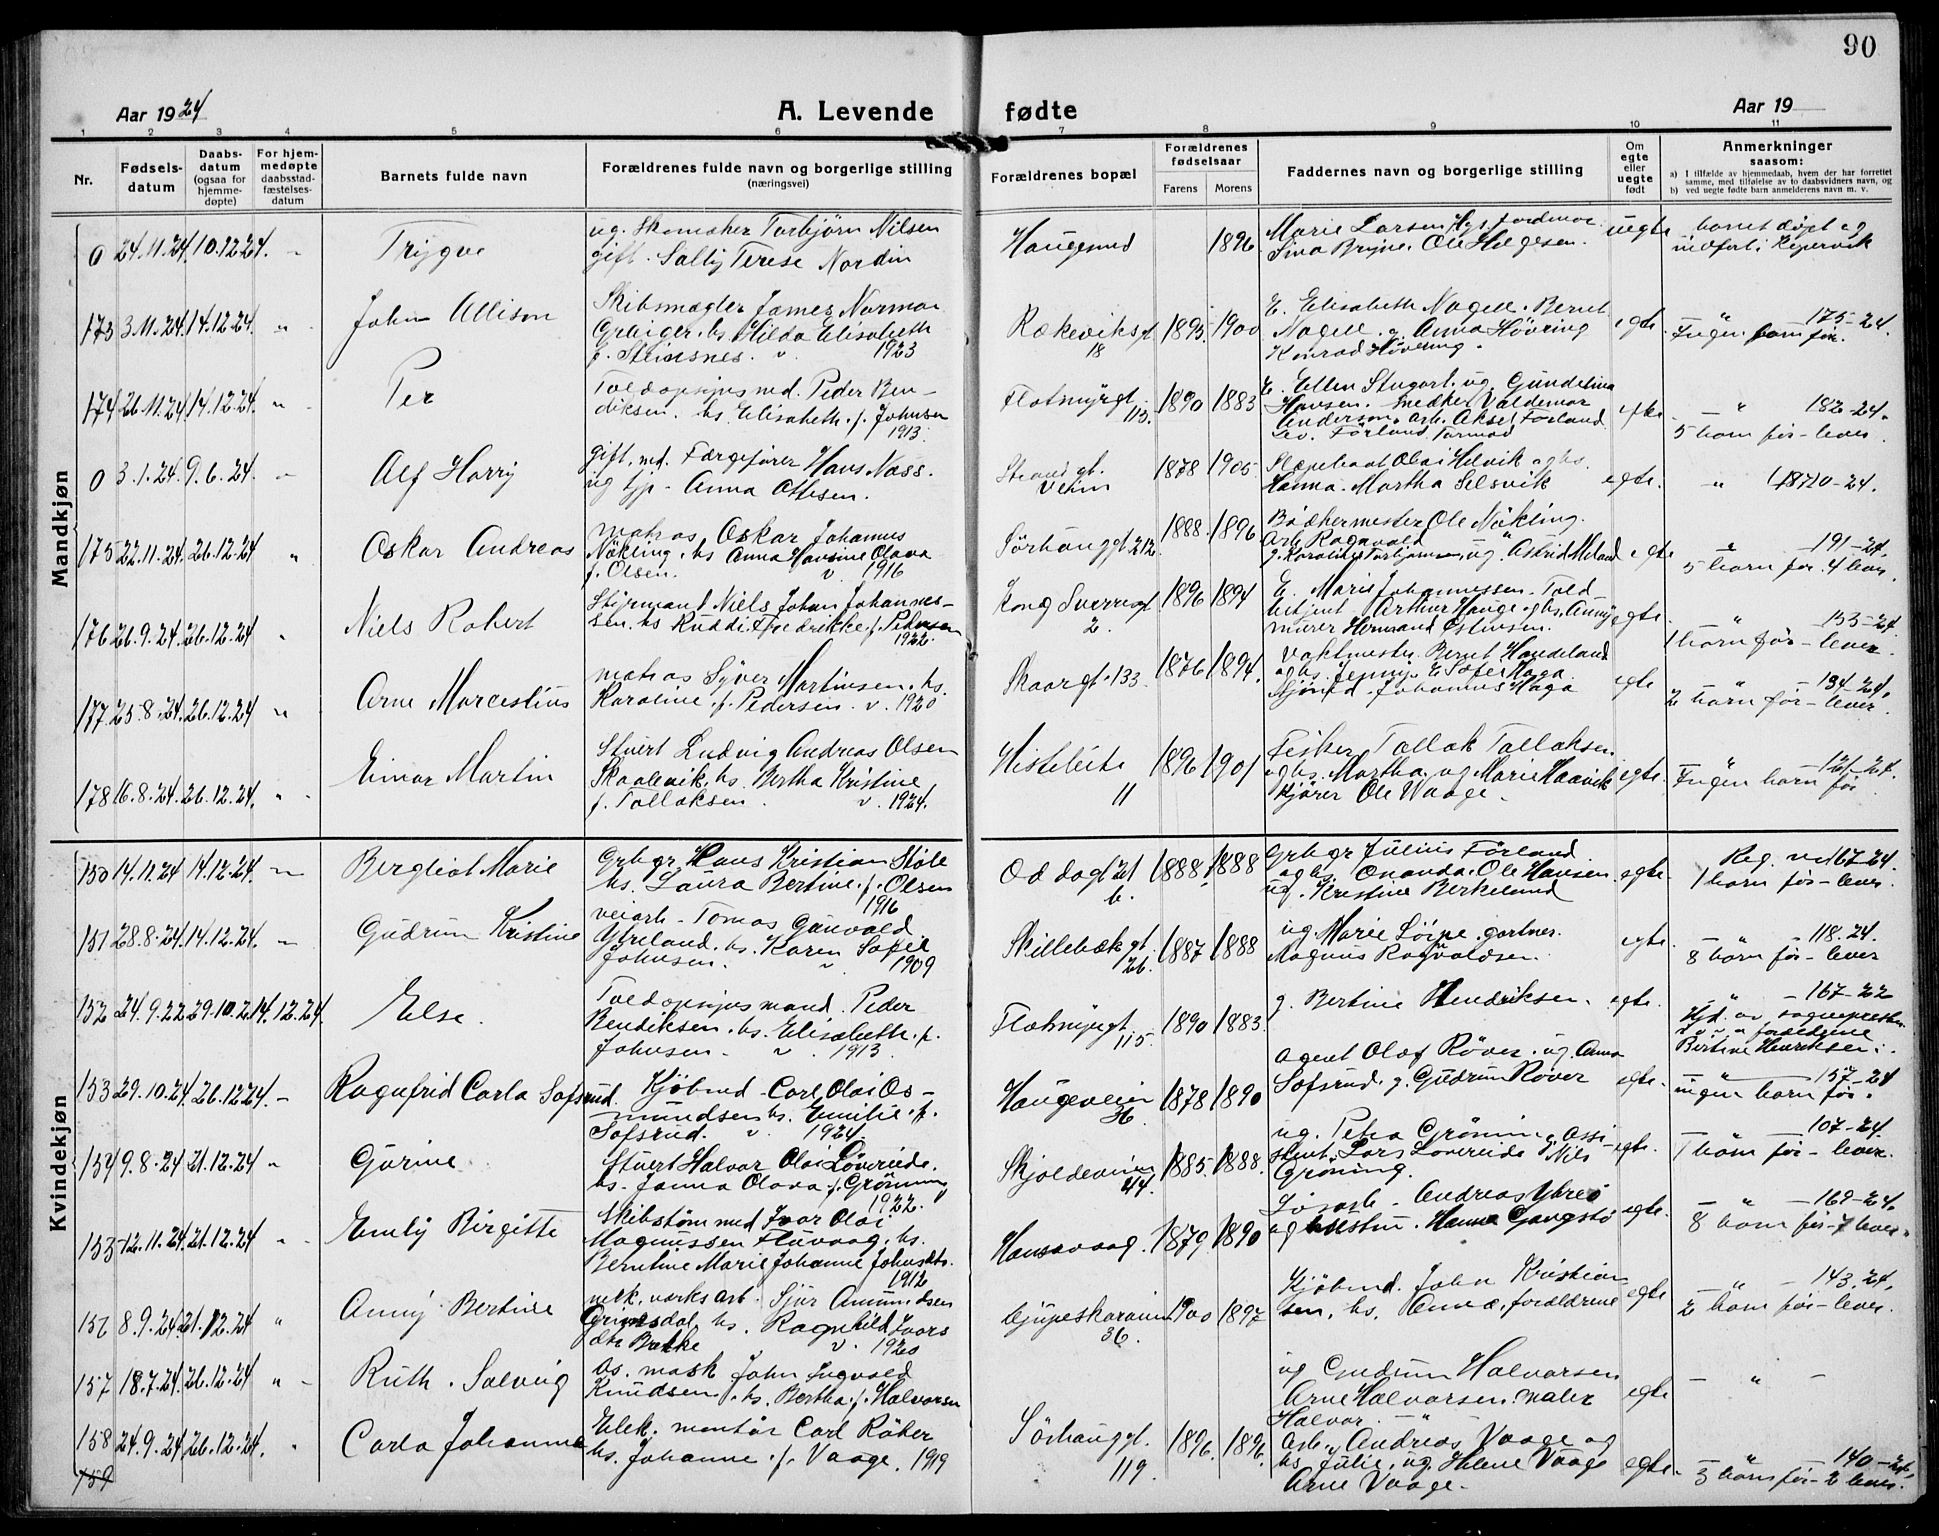 90
Aar 1924
A. Levende fødte
Aar 19
1 2 3 4 5 6 7 8 9 10 11
Nr.
Fødsels-datum
Daabs-datum (ogsaa for hjemme-døpte)
For hjem-medøpte daabsstad-fæstelses-datum
Barnets fulde navn
Forældrenes fulde navn og borgerlige stilling (næringsvei)
Forældrenes bopæl
Forældrenes fødselsaar
Farens Morens
Faddernes navn og borgerlige stilling
Om egte eller uegte født
Anmerkninger saasom:
a) I tilfælde av hjemmedaab, hvem der har forrettet samme, med tilføielse av to daabsvidners navn, og
b) ved uegte fødte barn anmelderens navn m. v.
Mandkjøn
0 24.11.24 10.12.24. Trygve
ug. Skomaker Torbjørn Nilsen
gift. Sally Terese Nordin
Haugesund 1896
Marie Larsen
Sina Bryne. Ole Helgesen.
uegte
barnet døpt og
173 3.11.24. 14.12.24. " John Allison
Skibsmægler James Norman
hs Hilda Elisabeth
f. Steinsnes. v 1923
Rækeviksgt 18 1895. 1900
E. Elisabeth Nagell. Bernt
Nagell. g. Anna Høvring
Konrad Høvring.
egte.
" 175-24.
Ingen barn før.
174 26.11.24. 14.12.24 " Per
Toldopsynsmd. Peder Ben-
diksen. hs Elisabeth. f. Johnsen
1913.
Flotmyrgt. 113. 1890 1883
E. Ellen Stugart. ug. Gundelina
Hansen. Valdemar
Anderson. arb. Aksel Førland
egte
" 182-24.
5 barn før - lever.
0 3.1.24. 9.6.24. Alf Harry
gift. md. Færgefører Hans Næss.
ug tjp - Anna Ottesen.
Strandgt. 1878 1905
Olai Helvik og hs.
Hanna. Martha Selsvik
egte.
175 22.11.24. 26.12.24 " Oskar Andreas
matros Oskar Johannes
Nökling. hs Anna Hansine Olava
f. Olsen. v 1916
Sørhauggt 212. 1888 1896
Bödkermester Ole Nökling.
Arb. Ragnvald
ug. Astrid Meland
egte
" 191-24.
5 barn før. 4 lever.
176 26.9.24. 26.12.24 " Niels Robert
Styrmand Niels Johan Johannes-
sen. hs Ruddi Fredrikke. f. Pedersen
1922.
Kong Sverresgt 2. 1896 1894
E. Marie Johannessen. Told-
betjent Arthur Hauge og hs. Anny
murer Hermand Østensen.
egte.
" 153-24.
1 barn før - lever.
177 25.8.24. 26.12.24 " Arne Marcelius
matros Syver Martinsen. hs.
Karoline. f. Pedersen. v. 1920
Skaargt. 133 1876 1894.
Vaktmester Bernt Handeland
og hs. Jenny. E. Sofie Haga
Sjömd. Johannes Haga
egte
" 134-24.
2 barn før - lever.
178 16.8.24. 26.12.24. " Einar Martin
Stuert Ludvig Andreas Olsen
Skaalevik. hs. Bertha Kristine
f. Tollaksen. v. 1924.
Histeleite 11 1896 1901
Fisker Tollak Tollaksen.
og hs. Martha. ug Marie Haavik
kjører Ole Vaage.
egte.
" 121-24.
Ingen barn før
Kvindekjøn
150 14.11.24 14.12.24. Bergliot Marie
Grbgr. Hans Kristian Støle
hs. Laura Bertine. f. Olsen
1916
Oddagt 21 b. 1888. 1888
Grbgr Julius Förland
og hs. Ananda. Ole Hansen.
ug. Kristine Birkeland
egte.
Reg. ved 167-24.
1 barn før - lever.
151 28.8.24. 14.12.24. Gudrun Kristine
veiarb - Tomas Gunvald
Ytreland. hs. Karen Sofie
Johnsen. v 1909
Skillebækgt. 26. 1887 1888
ug. Marie Löine. gartner.
Magnus Ragvaldsen.
egte.
" 118.24.
8 barn før - lever
152 24.9.22 29.10.2 14.12.24. Else.
Toldopsynsmand. Peder
Bendiksen. hs. Elisabeth. f.
Johnsen. v 1913.
Flotmyrgt. 115. 1890 1883.
g. Bertine Hendriksen.
egte.
" 167-22
Hjd. av sogneprest
" forældrene
Bertine Henriksen.
153 29.10.24. 26.12.24. Ragnfrid Carla Sofsrud.
Kjøbmd - Carl Olai Os-
mundsen hs. Emilie. f.
Sofsrud. v. 1924.
Haugeveien 36. 1878 1890
Agent Olaf Røver. ug. Anna
Sofsrud. g. Gudrun Røver
egte.
157-24
ingen barn før.
154 9.8.24. 21.12.24 " Gurine.
Stuert Halvor Olai Løvereide.
hs. Janna Olava. f. Gröning
1922. v
Skjoldeveien 44. 1885. 1888.
ug. Petra Gröning. Assi-
stent. Lars Løvereide g. Nils
Gröning.
egte.
107-24.
1 barn før - lever.
155 12.11.24. 21.12.24 Emly Birgitte
Skibstømmd Ivar Olai
Magnussen Fluvaag. hs.
Berntine Marie Johanne Johnsdtr.
1912
Hansavaag. 1879 1890
Løsarb - Andreas Ytreø
og hustru. Hanna Gangstø
egte.
" 169-24.
8 barn før - 7 lever.
156 8.9.24. 21.12.24 " Anny Bertine
mek. verksarb. Sjur Amundsen
Grimsdal. hs. Ragnhild Ivars
dtr Bakke v. 1920
Gjupeskarveien 36. 1900 1897
Kjøbmd. John Kristian
sen. hs. Anna. forældrene
egte
" 143.24.
2 barn før - lever.
157 18.7.24. 26.12.24 " Ruth. Solveig
bs. mask John Ingvald
Knudsen. hs. Bertha. f. Halvorsen
ug Gudrun Halvorsen
Arne Halvorsen. maler
Halvor. "
egte
"
158 24.9.24 26.12.24. Carla Johanne
159
Elek. montør Carl Røther
hs. Johanne. f. Vaage. 1919
Sørhauggt. 119. 1896. 1896.
Arb. Andreas Vaage og
hs. Julie. ug. Helene Vaage
Arne Vaage.
egte.
140-24.
3 barn før - 2 lever.